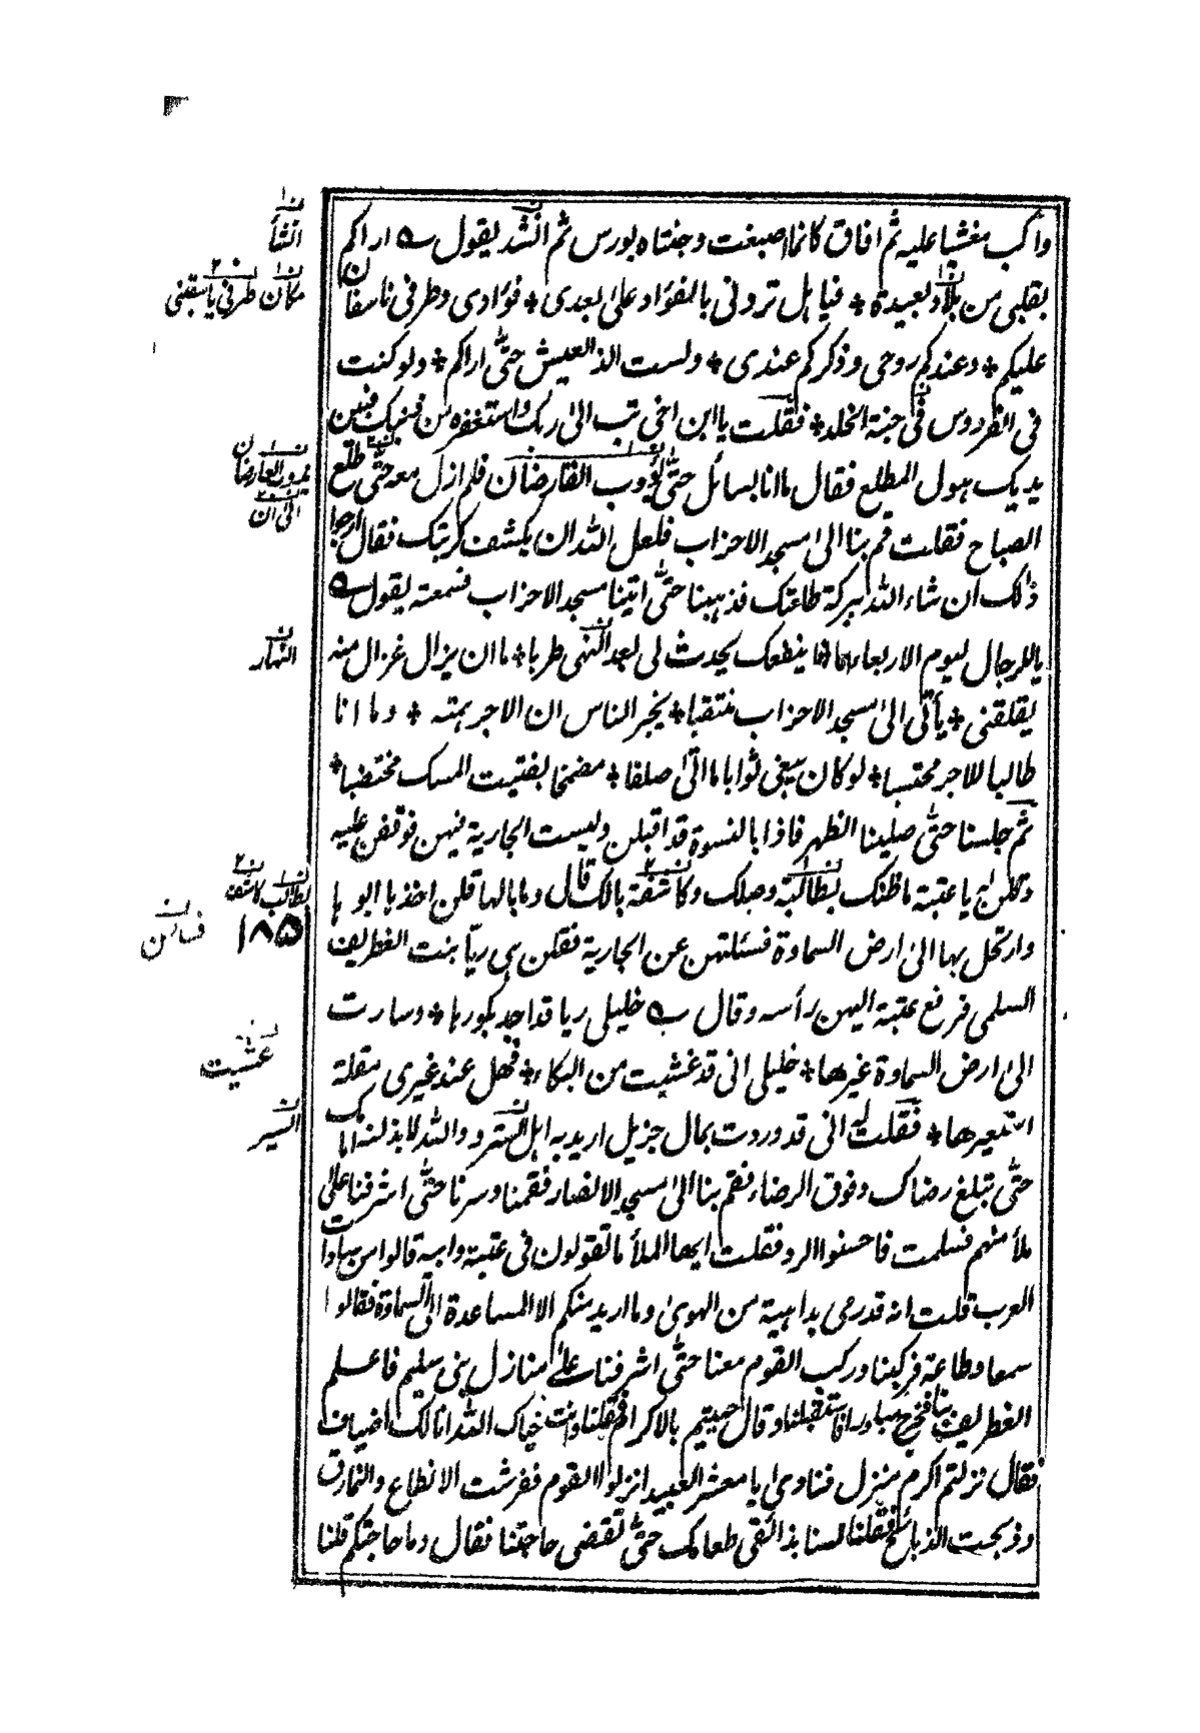 واكب مغشيا عليه ثم افاق كانما اصبغت وجنتاه بورس ثم انشد يقول اراكم
بقلبى من بلاد بعيدة * فيا هل ترونى بالفؤاد على بعدى * فؤادى وطرفى ناسفان
عليكم * وعندكم روحى وذكركم عندى * ولست الذ العيش حتى اراكم * ولو كنت
فى الفردوس فى جنة الخلد * فقلت يا ابن اخى تب الى ربك واستغفره من ذنبك فبين
يديك هول المطلع فقال ما انا بسائل حتى يؤوب القارضان فلم ازل معه حتى طلع
الصباح فقلت قم بنا الى مسجد الاحزاب فلعل الله ان يكشف كربتك فقال ارجوا
ذلك ان شاء الله ببركة طاعتك فذهبنا حتى اتينا مسجد الاحزاب فسمعته يقول
يا للرجال ليوم الاربعاء اما * ينفعك يحدث لى بعد النهى طربا * ما ان يزال غزال منه
يقلقنى * يأتى الى مسجد الاحزاب منتقبا * يخبر الناس ان الاجر همته * وما انا
طالبا للاجر محتسبا * لو كان يبغى ثوابا ما اتى صلفا * مضمخا بفتيت المسك مختضبا *
ثم جلسنا حتى صلينا الظهر فاذا بالنسوة قد اقبلن وليست الجارية فيهن فوقفن عليه
وقلن له يا عتبة ما ظنك بطالبة وصلك وكاشفة بالك قال وما بالها قلن اخذها ابوها
وارتحل بها الى ارض السماوة فسئلتهن عن الجارية فقلن هى ريا بنت الغطريف
السلمى فرفع عتبة اليهن رأسه وقال خليلى ريا قد اجد بكورها * وسارت
الى ارض السماوة غيرها * خليلى انى قد غشيت من البكاء * فهل عند غيرى مقلة
استعيرها * فقلت له انى قد وردت بمال جزيل اريد به اهل الستر ووالله لابذلنه امامك
حتى تبلغ رضاك وفوق الرضاء فقم بنا الى مسجد الانصار فقمنا وسرنا حتى اشرفنا على
ملأ منهم فسلمت فاحسنوا الرد فقلت ايها الملأ ما تقولون فى عتبة وابيه قالوا من سادات
العرب قلت انه قد رمى بداهية من الهوى وما اريد منكم الا المساعدة الى السماوة فقالوا
سمعا وطاعة فركبنا وركب القوم معنا حتى اشرفنا على منازل بنى سليم فاعلم
الغطريف بنا فخرج مبادرا فاستقبلنا وقال حييتم بالاكرام فقلنا وانت حياك الله انا لك اضياف
فقال نزلتم اكرم منزل فنادى يا معشر العبيد انزلوا القوم ففرشت الانطاع والنمارق
وذبحت الذبائح فقلنا لسنا بذائقى طعامك حتى تقضى حاجتنا فقال وما حاجتكم قلنا
انشأ
مكان طرفى يا سقنى
الى ان
النهار
بطالب كاشف
١٨٥
عشيت
السير